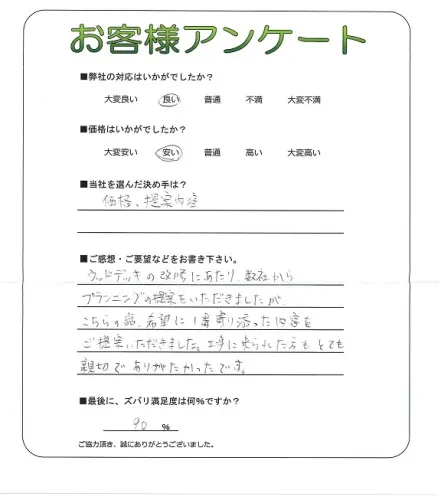 お客様アンケート
■弊社の対応はいかがでしたか？
大変良い 良い 普通 不満 大変不満
■価格はいかがでしたか？
大変安い 安い 普通 高い 大変高い
■当社を選んだ決め手は？
価格、提案内容
■ご感想・ご要望などをお書き下さい。
ウッドデッキの改修にあたり、数社から
プランニングの提案をいただきましたが、
こちらの話、希望に1番寄り添った内容を
ご提案いただきました。工事に来られた方もとても
親切でありがたかったです。
■最後に、ズバリ満足度は何%ですか？
90 %
ご協力頂き、誠にありがとうございました。